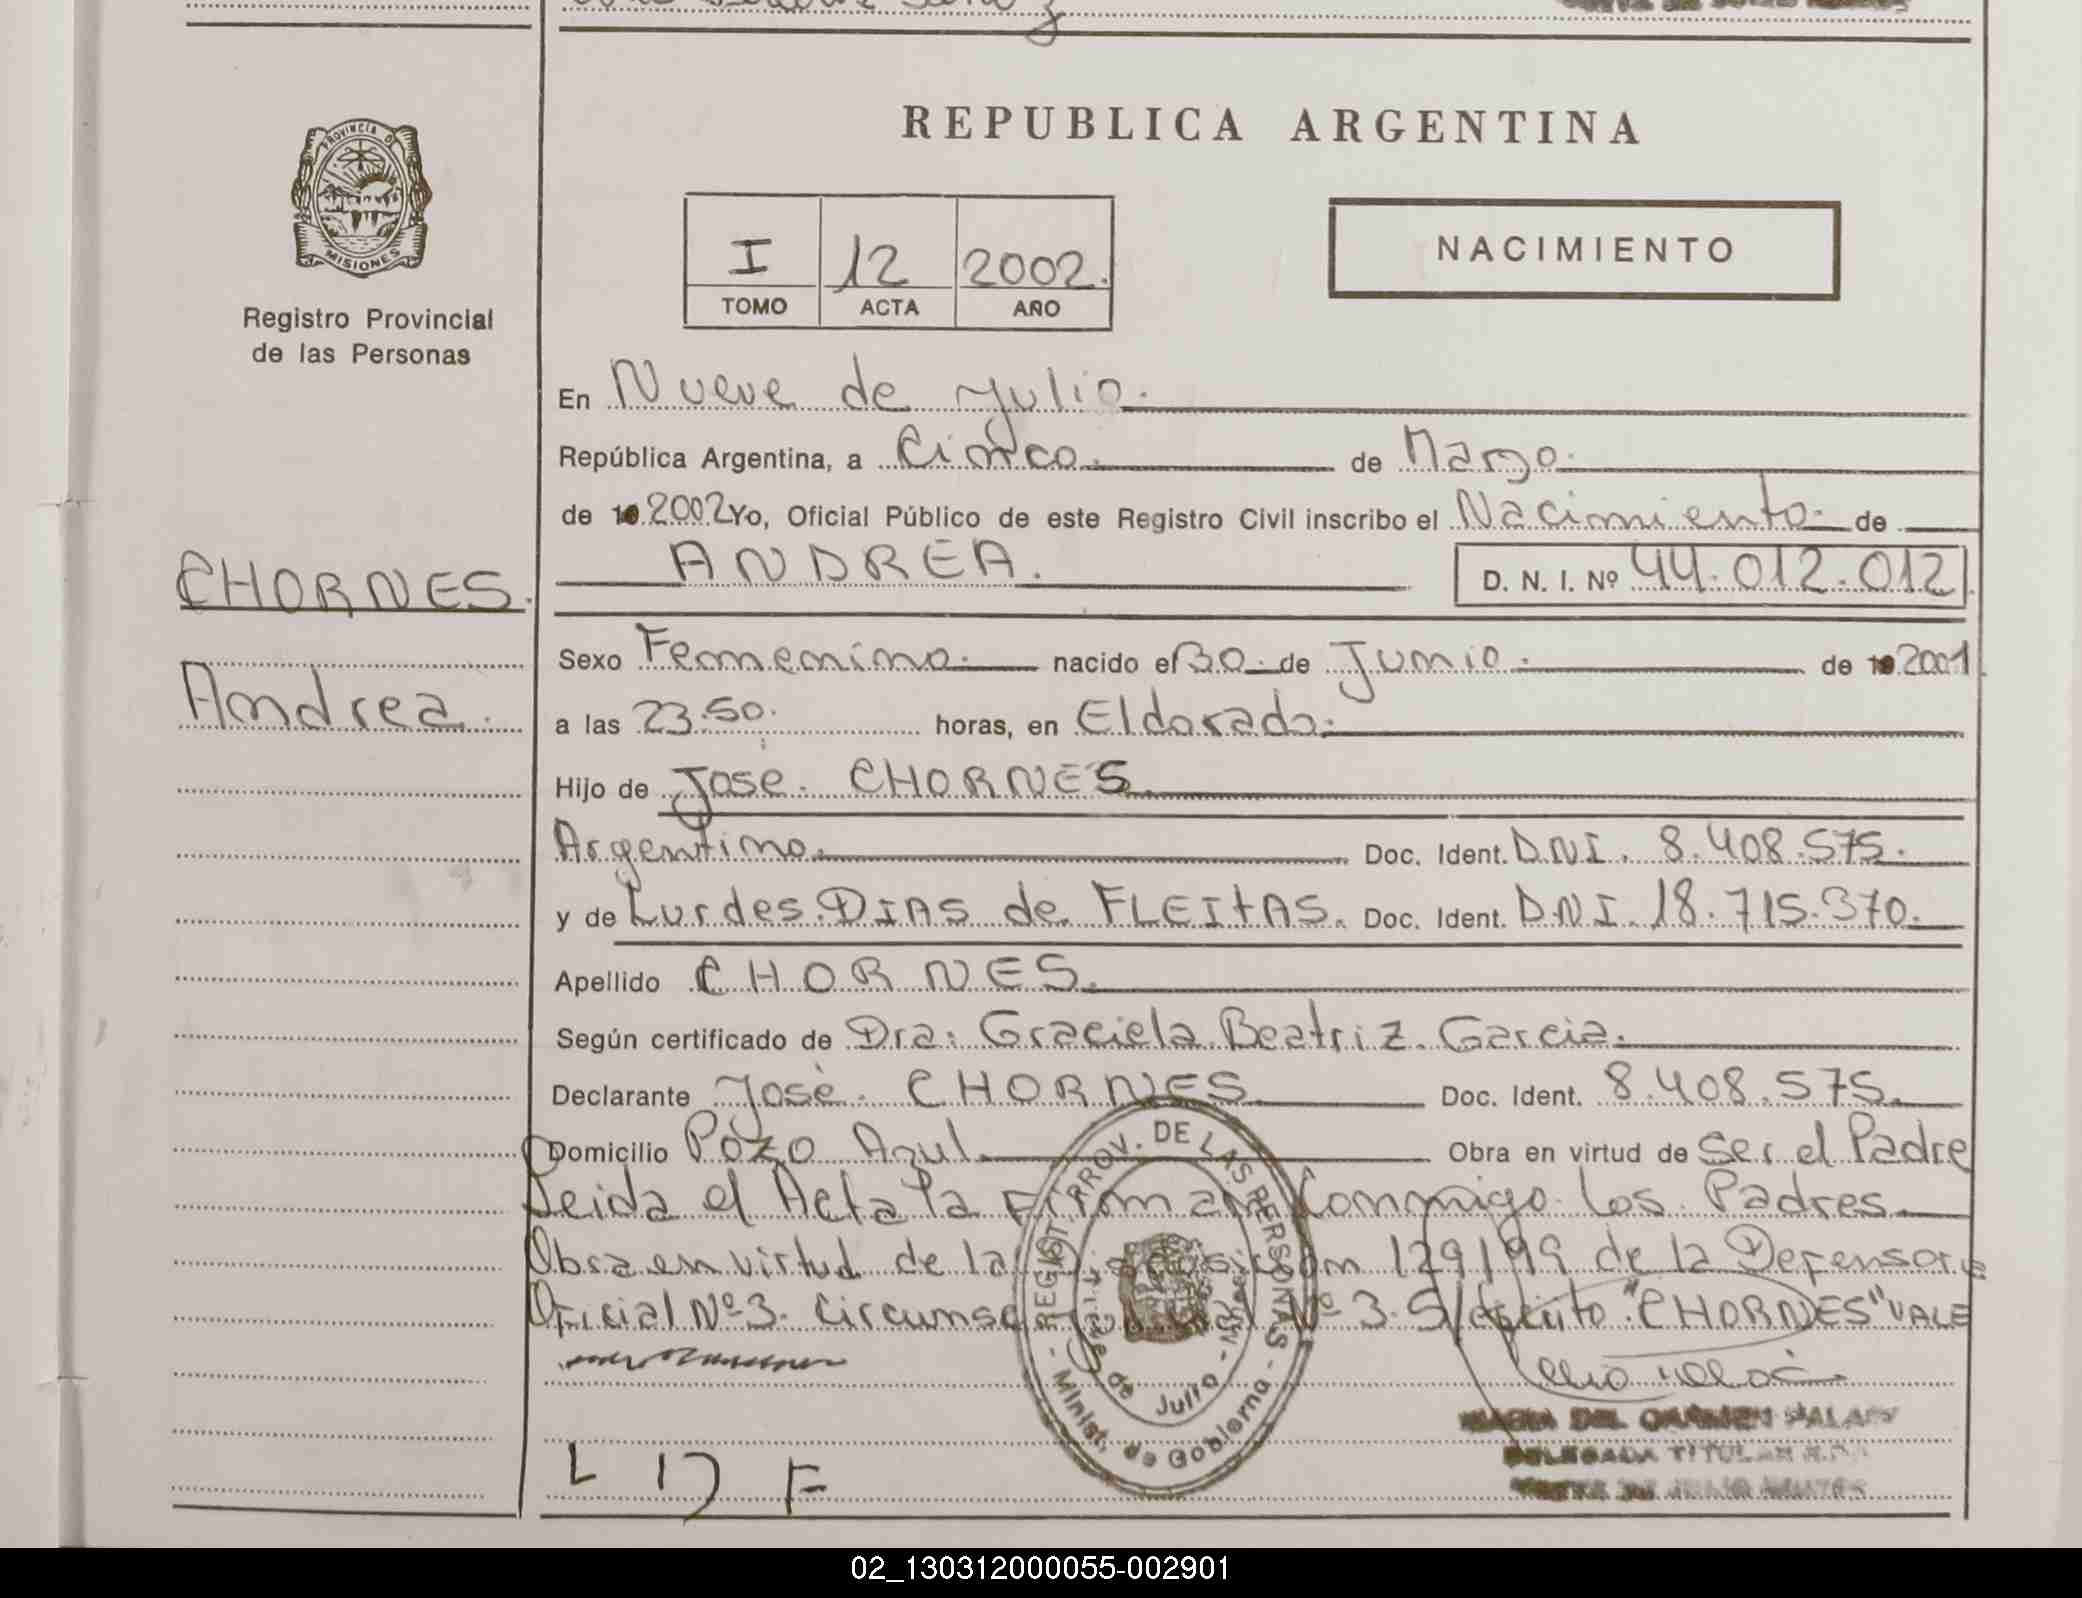 REPUBLICA ARGENTINA
PROVINCIA D
MISIONES
Registro Provincial
de las Personas
I 12 2002.
TOMO ACTA AÑO
NACIMIENTO
En Nueve de Julio.
República Argentina, a Cinco. de Marzo.
de 19 2002 Yo, Oficial Público de este Registro Civil inscribo el Nacimiento de
CHORNES.
ANDREA. D. N. I. Nº 44.012.012
Andrea.
Sexo Femenino. nacido el 30. de Junio. de 19 2001
a las 23.50. horas, en Eldorado.
Hijo de Jose. CHORNES.
Argentino. Doc. Ident. D.N.I. 8.408.575.
y de Lurdes. DIAS de. FLEITAS. Doc. Ident. D.N.I. 18.715.370.
Apellido CHORNES.
Según certificado de Dra: Graciela Beatriz. Garcia.
Declarante José. CHORNES. Doc. Ident. 8.408.575.
Domicilio Pozo Azul. Obra en virtud de Ser el Padre
Leida el Acta la Firman Conmigo los Padres.
Obra en virtud de la 129/99 de la Defensoria
Oficial Nº 3. Nº 3. S/escrito "CHORNES" VALE
REGIST. PROV. DE LAS PERSONAS - Minist. de Gobierno -
de Julio
MARIA DEL CARMEN
DELEGADA TITULAR
L D F
02_130312000055-002901